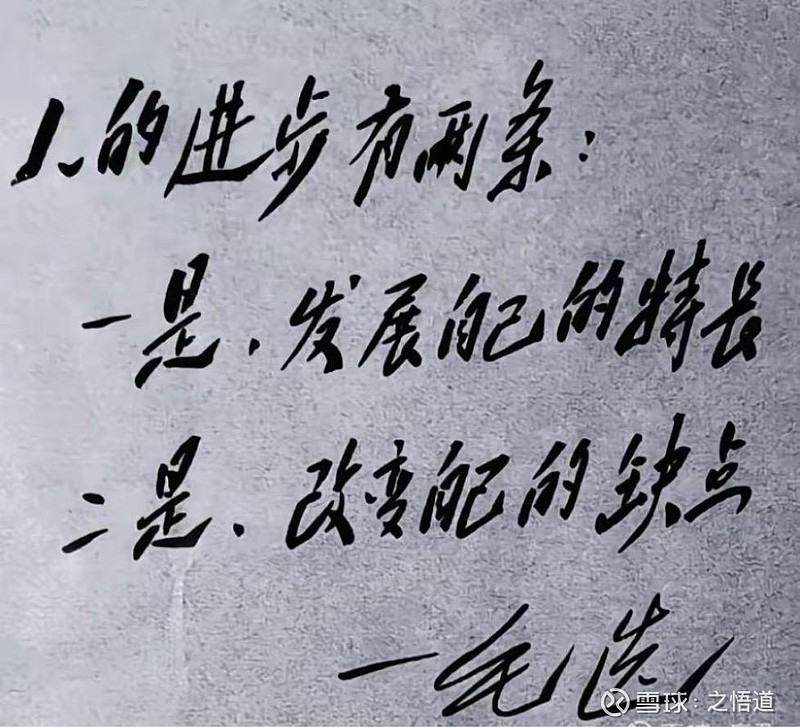 人的进步有两条：
一是、发展自己的特长
二是、改变自己的缺点
一毛选
雪球：之悟道